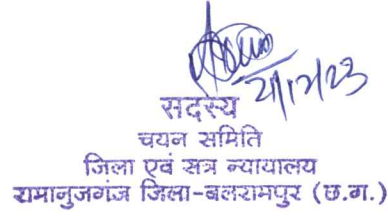 21/12/23
सदस्य
चयन समिति
जिला एवं सत्र न्यायालय
रामानुजगंज जिला-बलरामपुर (छ.ग.)